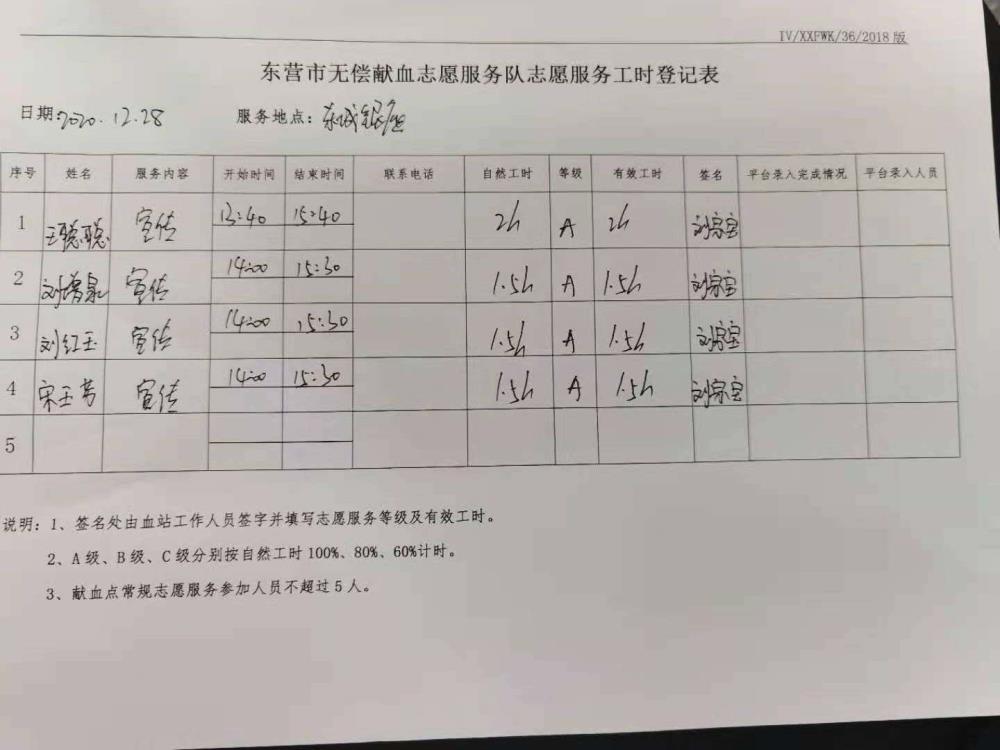 IV/XXFWK/36/2018版
东营市无偿献血志愿服务队志愿服务工时登记表
日期:2020.12.28 服务地点：东城银座
序号 姓名 服务内容 开始时间 结束时间 联系电话 自然工时 等级 有效工时 签名 平台录入完成情况 平台录入人员
1 王聪聪 宣传 13:40 15:40 2h A 2h
2 刘增泉 宣传 14:00 15:30 1.5h A 1.5h
3 刘红玉 宣传 14:00 15:30 1.5h A 1.5h
4 宋玉芳 宣传 14:00 15:30 1.5h A 1.5h
5
说明：1、签名处由血站工作人员签字并填写志愿服务等级及有效工时。
2、A级、B级、C级分别按自然工时100%、80%、60%计时。
3、献血点常规志愿服务参加人员不超过5人。